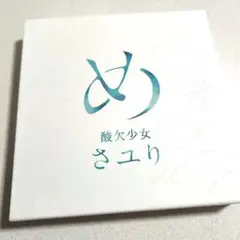 め
酸欠少女
さユり